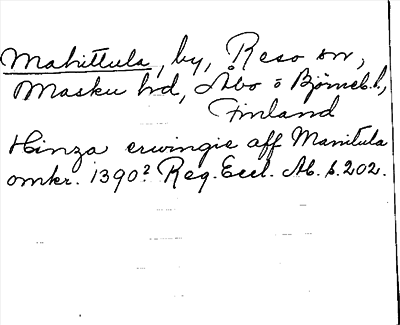 Mahittula, by, Reso sn,
Masku hd, Åbo o Björneb. l,
Finland
Hinza erwingie aff Manitula
omkr. 1390? Reg. Eccl. Ab. s. 202.